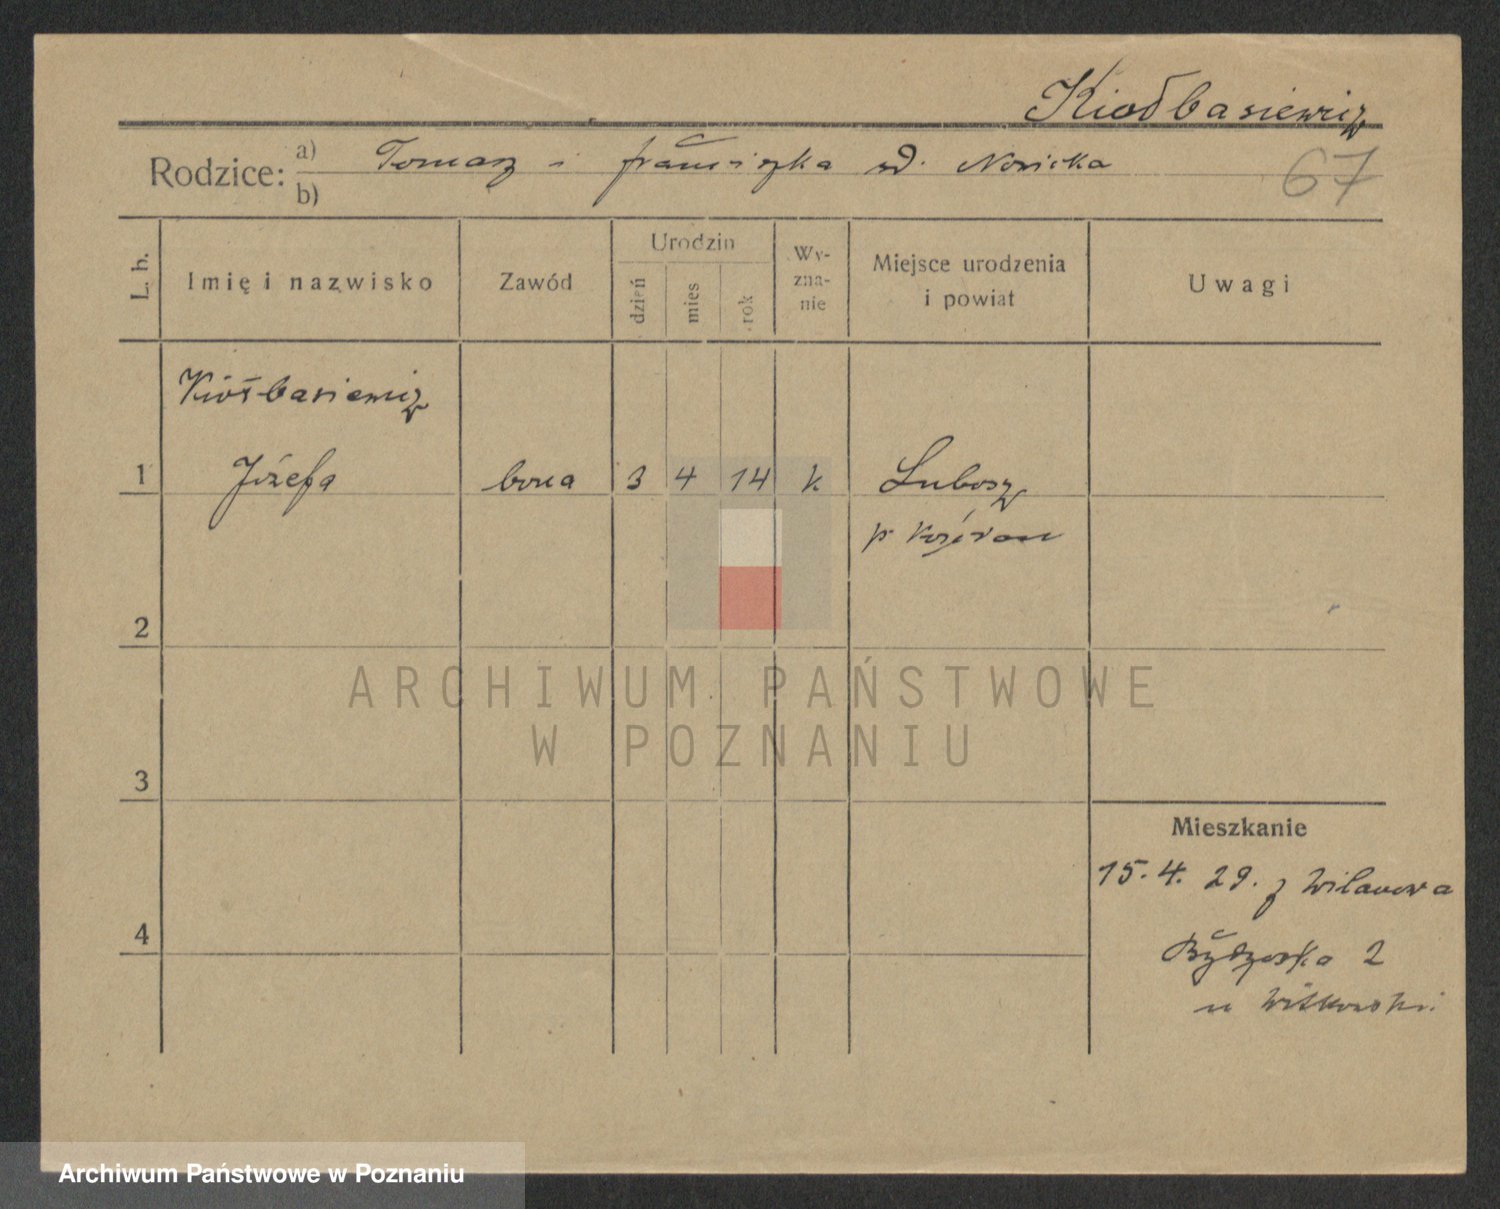 Kiołbasiewicz
Rodzice: a) Tomasz i Franciszka ur. Nowicka
b)
67
L. b.
Imię i nazwisko
Zawód
Urodzin
dzień
mies
rok
Wy-
zna-
nie
Miejsce urodzenia
i powiat
Uwagi
Kiołbasiewicz
1 Józefa bona 3 4 14 k Lubosz
p.
2
3
4
Mieszkanie
15. 4. 29. z Wilanowa
Bydgoska 2
u Witkowski
ARCHIWUM PAŃSTWOWE
W POZNANIU
Archiwum Państwowe w Poznaniu